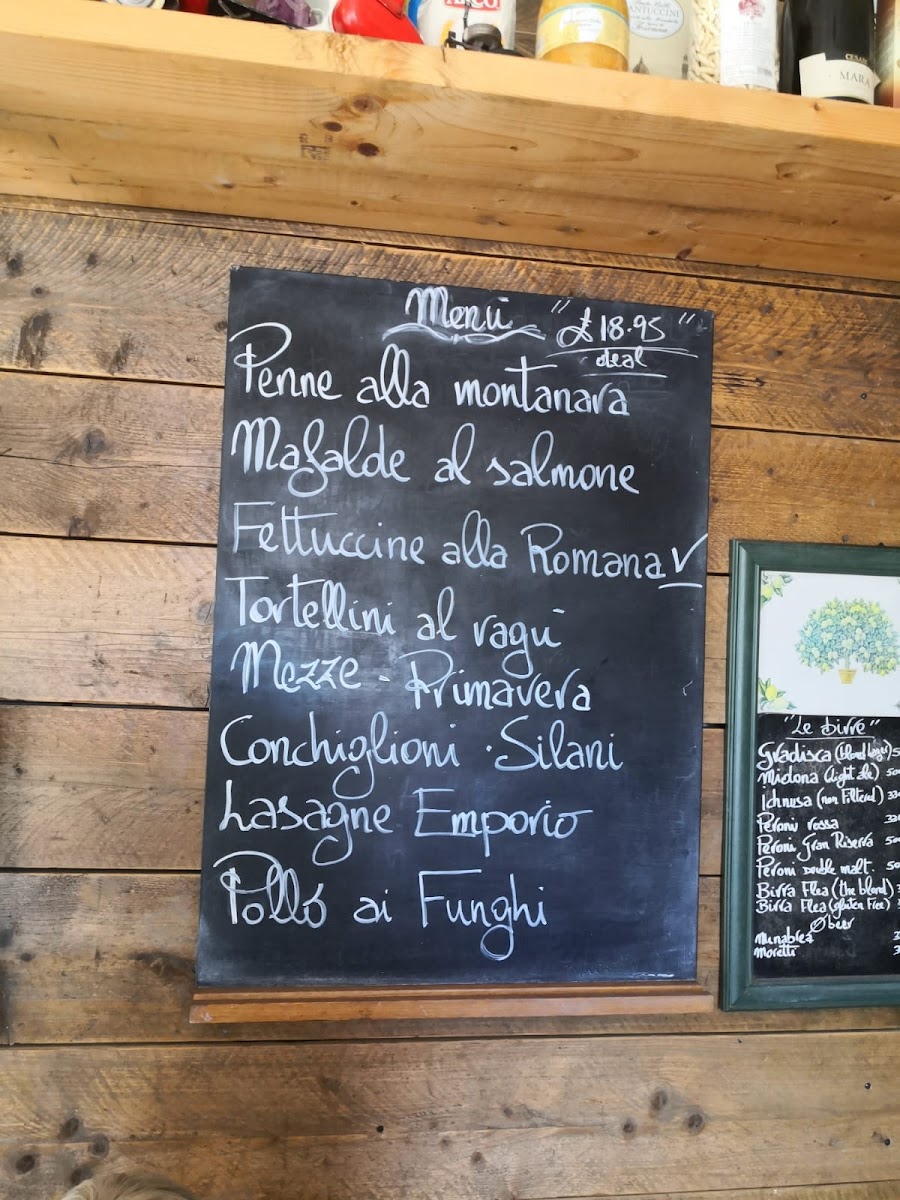 ANTUCCINI
MARA
Menù
"£18.95"
deal
Penne alla montanara
Mafalde al salmone
Fettuccine alla Romana V
Tortellini al ragù
Mezze · Primavera
Conchiglioni · Silani
Lasagne Emporio
Pollo ai Funghi
"Le birre"
Gradisca (blond lager) 5
Midona (light ale) 50
Ichnusa (non Filtered) 33
Peroni rossa 33
Peroni Gran Riserva 50
Peroni Double malt. 50
Birra Flea (the blond) 3
Birra Flea (gluten Free) 3
Ø beer
Menabrea 3
Moretti 3